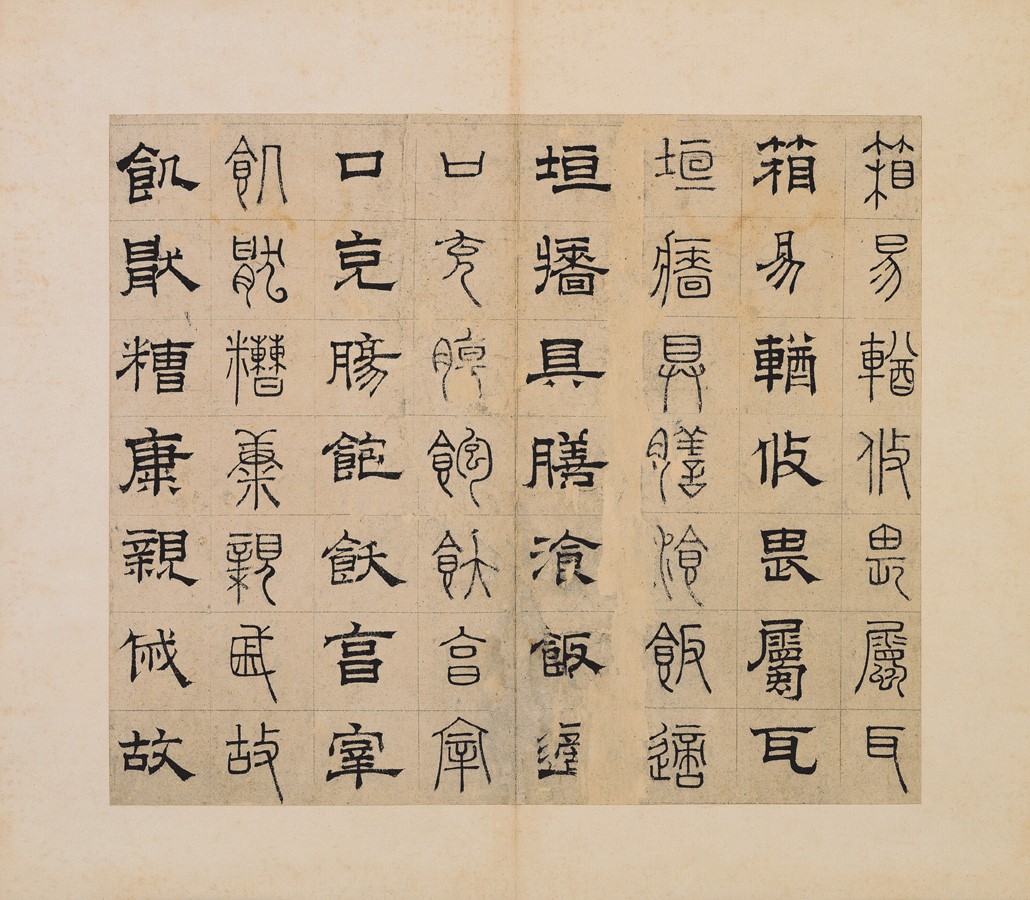 箱易輶攸畏屬耳
箱易輶攸畏屬耳
垣牆具膳湌飯適
垣牆具膳湌飯適
口充腸飽飫亯宰
口充腸飽飫亯宰
飢猒糟康親戚故
飢猒糟康親戚故